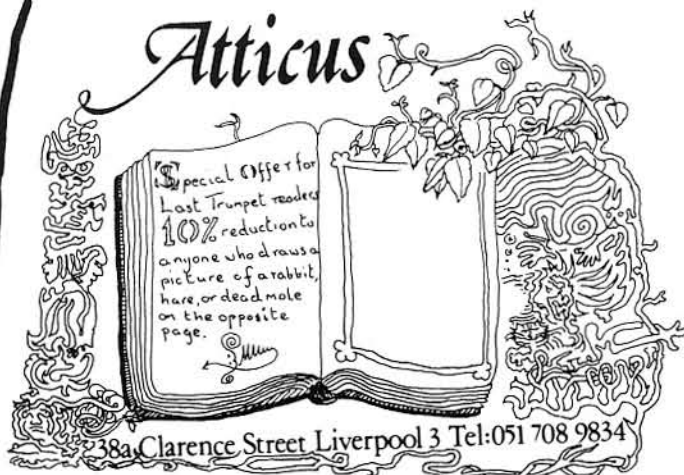 Atticus
Special Offer for
Last Trumpet readers
10% reduction to
anyone who draws a
picture of a rabbit,
hare, or dead mole
on the opposite
page.
38a Clarence Street Liverpool 3 Tel:051 708 9834